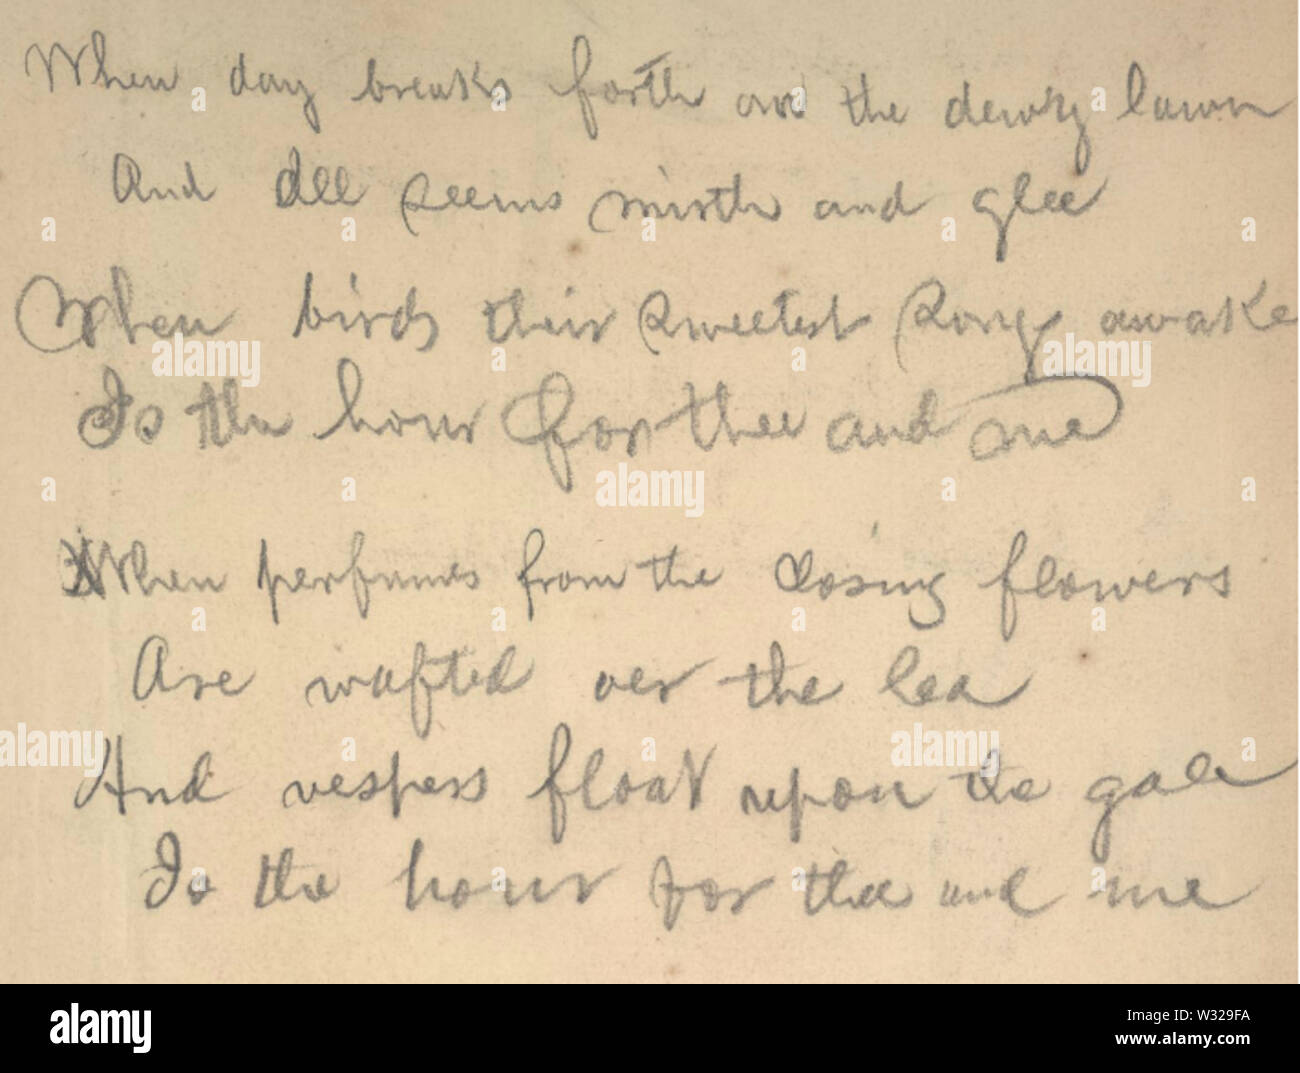 When day breaks forth on the dewy lawn
And All seems mirth and glee
When birds their sweetest song awake
Is the hour for thee and me
When perfumes from the closing flowers
Are wafted oer the lea
And vespers float upon the gale
Is the hour for thee and me
a alamy
alamy
Image ID: W329FA
www.alamy.com